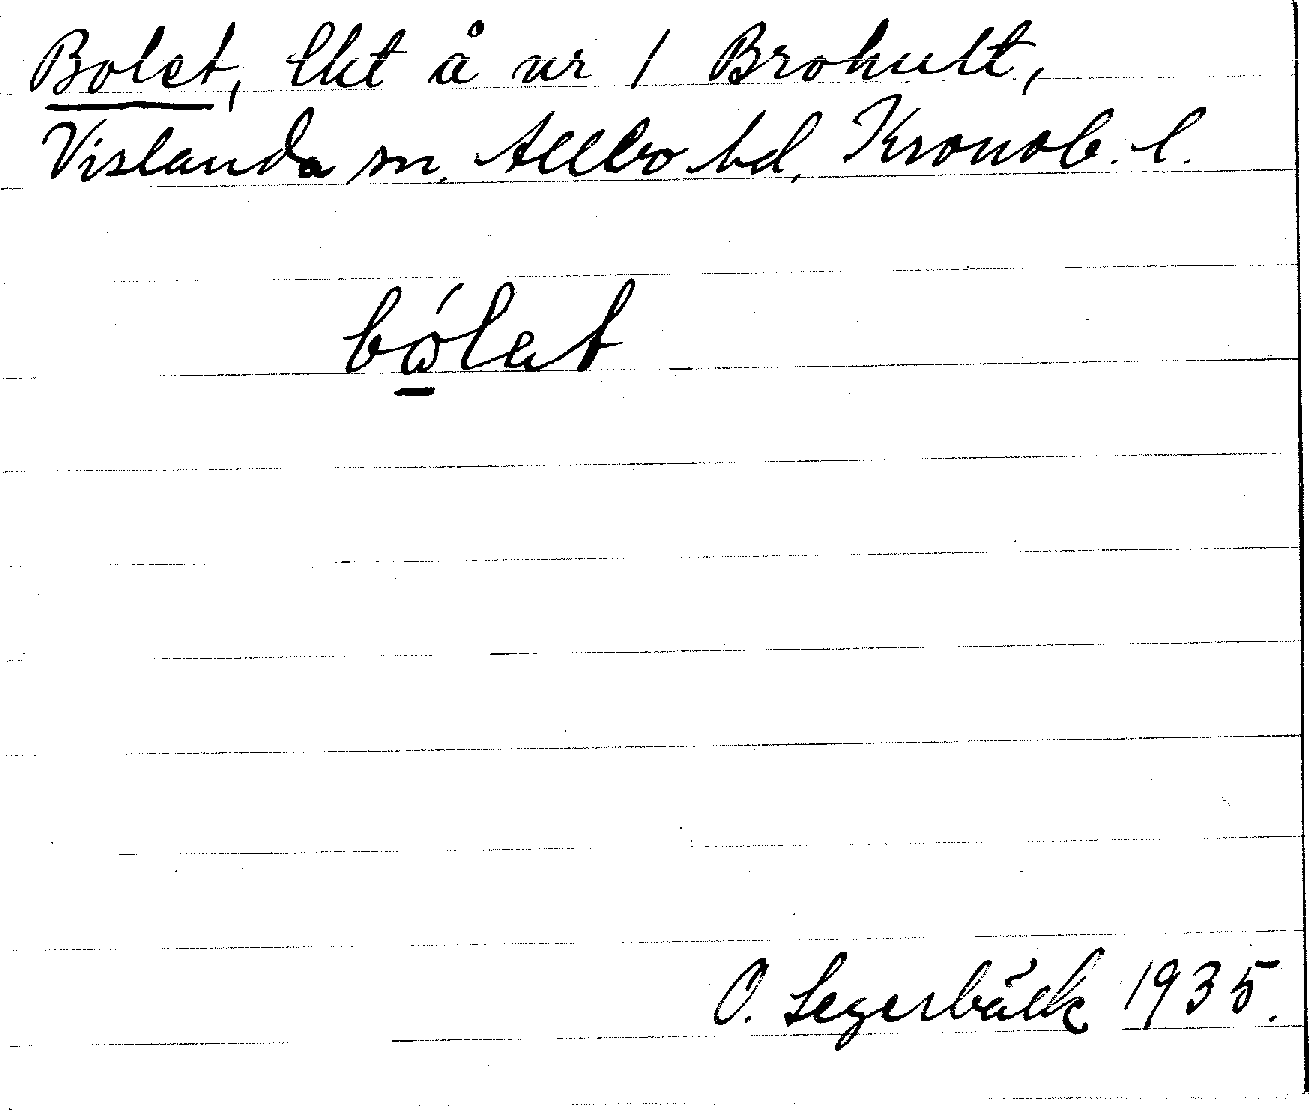 Bolet, lht å nr 1 Brohult,
Vislanda sn. Allbo hd, Kronob. l.
bó̲lat
O. Segerbäck 1935.